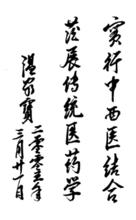 实行中西医结合
发展传统医药学
温家宝
二零零五年
三月廿一日